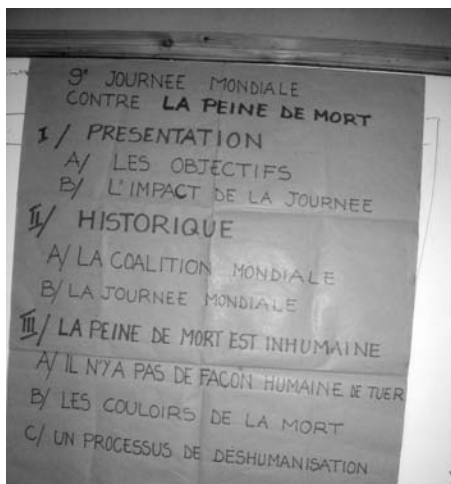 9e JOURNEE MONDIALE
CONTRE LA PEINE DE MORT
I/ PRESENTATION
A/ LES OBJECTIFS
B/ L'IMPACT DE LA JOURNEE
II/ HISTORIQUE
A/ LA COALITION MONDIALE
B/ LA JOURNEE MONDIALE
III/ LA PEINE DE MORT EST INHUMAINE
A/ IL N'Y A PAS DE FAÇON HUMAINE DE TUER
B/ LES COULOIRS DE LA MORT
C/ UN PROCESSUS DE DÉSHUMANISATION